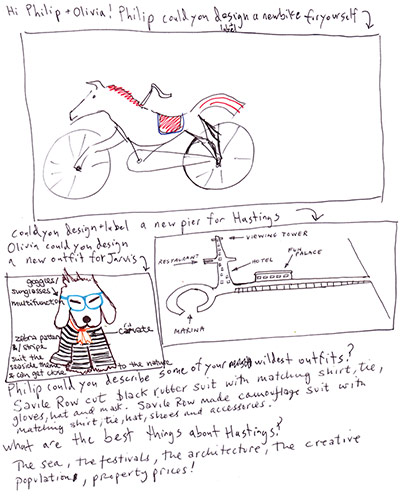 Hi Philip + Olivia! Philip could you design a new bike for yourself
label
could you design + label a new pier for Hastings
Olivia could you design
a new outfit for Jarvis
goggles/
sunglasses
multifunction
zebra
stripe
suit the
seaside theme
& can get close
to the nature
VIEWING TOWER
RESTAURANT
HOTEL
FUN
PALACE
MARINA
Philip could you describe some of your wildest outfits?
Savile Row cut black rubber suit with matching shirt, tie,
gloves, hat and mask. Savile Row made camouflage suit with
matching shirt, tie, hat, shoes and accessories.
what are the best things about Hastings?
The sea, the festivals, the architecture, the creative
population, property prices!